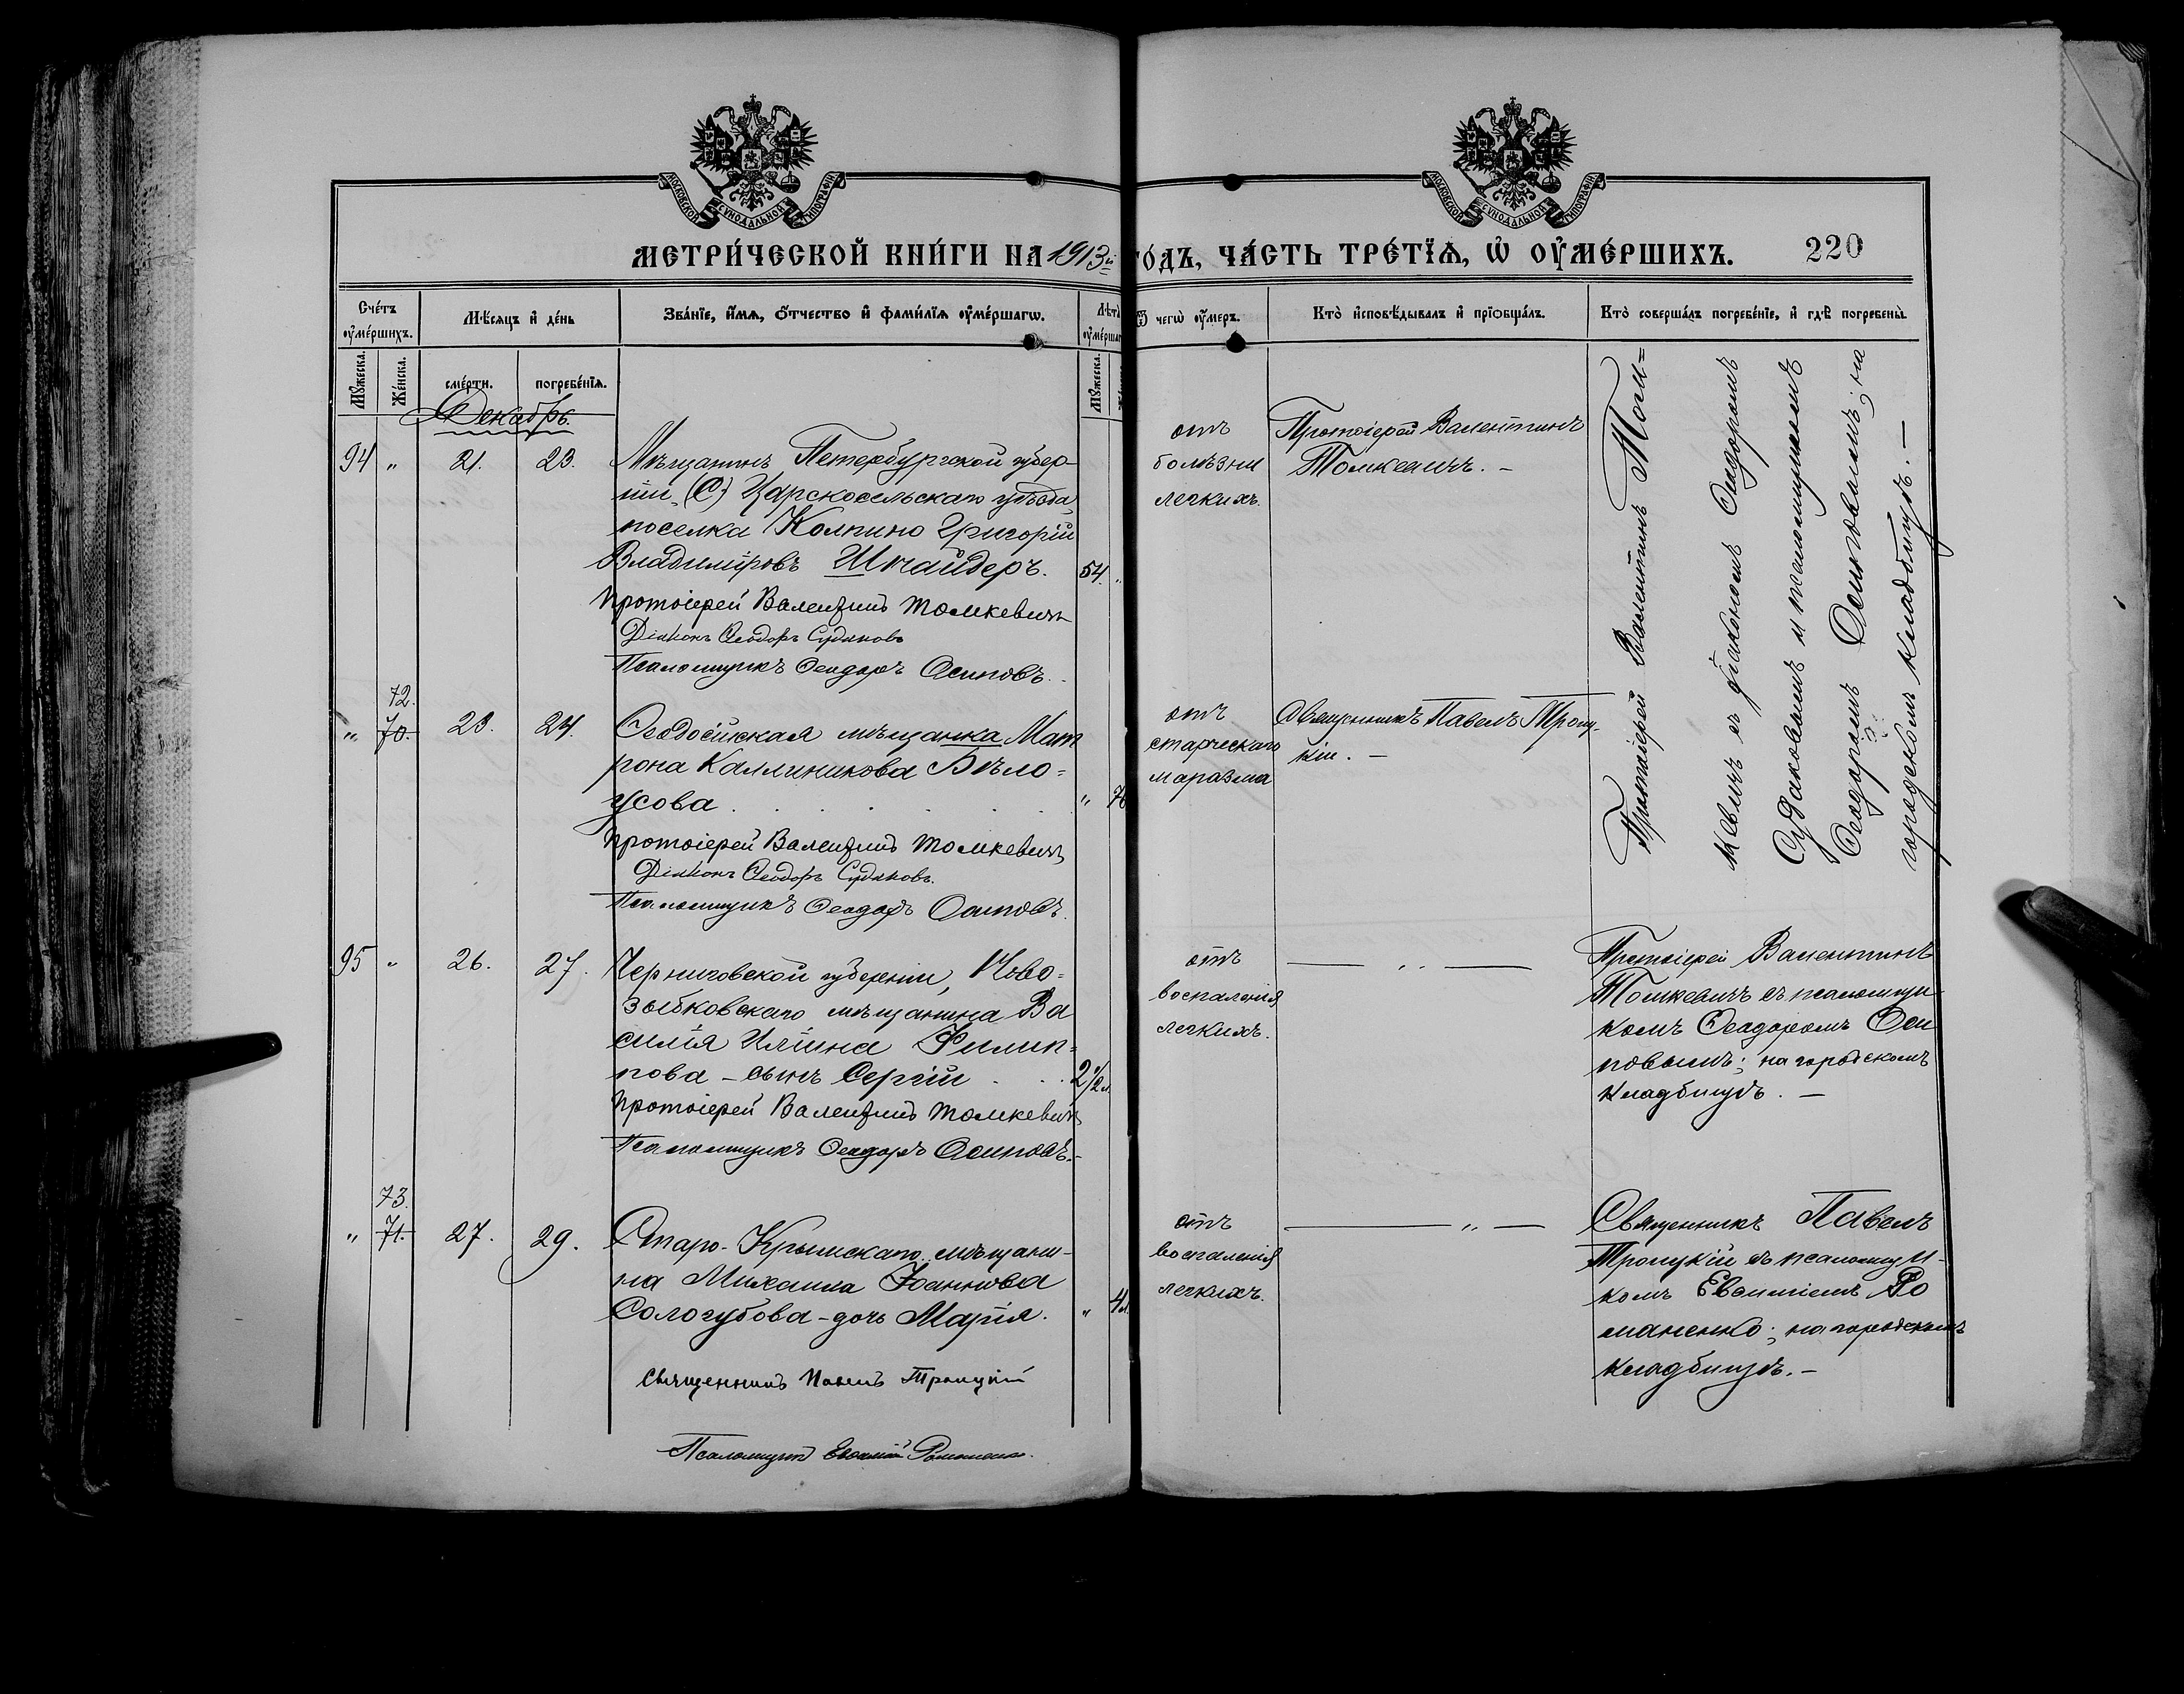 МОСКОВСКОЙ СѴНОДАЛЬНОЙ ТИПОГРАФІИ
МОСКОВСКОЙ СѴНОДАЛЬНОЙ ТИПОГРАФІИ
МЕТРИ́ЧЕСКОЙ КНИ́ГИ НА 1913й ГО́ДЪ, ЧА́СТЬ ТРЕ́ТЇѦ, Ѡ҆ ОУ҆МЕ́РШИХЪ. 220
Сче́тъ оу҆ме́ршихъ.
Мѣ́сяцъ и҆ де́нь
Зва́нїе, и҆́мѧ, ѻ҆́тчество и҆ фами́лїѧ оу҆ме́ршагѡ.
Лѣтъ
оу҆ме́ршаг
Ѿ чегѡ̀ оу҆́меръ.
Кто̀ и҆сповѣ́дывалъ и҆ прїѻбща́лъ.
Кто̀ соверша́лъ погребе́нїе, и҆ гдѣ̀ погребены̀.
Мꙋ́жеска.
Же́нска.
сме́рти.
погребе́нїѧ.
Мꙋ́жеска.
Декабрь.
94 " 21. 23.
Мѣщанинъ Петербургской губер-
нiи, (С) Царскосельскаго уѣзда,
поселка Колпино Григорій
Владиміровъ Шнайдеръ. 54. "
Протоіерей Валентинъ Томкевичъ
Діаконъ Ѳеодоръ Судаковъ
Псаломщикъ Ѳеодоръ Осиповъ.
отъ
болѣзни
легкихъ.
Протоіерей Валентинъ
Томкевичъ. -
Протоіерей Валентинъ Том=
кевичъ съ діакономъ Ѳеодоромъ
Судаковымъ и псаломщикомъ
Ѳеодоромъ Осиповымъ; на
городскомъ кладбищѣ. —
72.
" 70. 23. 24.
Ѳеодосійская мѣщанка Мат
рона Каллиникова Бѣло=
усова . . . . . " 76
Протоіерей Валентинъ Томкевичъ
Діаконъ Ѳеодоръ Судаковъ.
Псаломщикъ Ѳеодоръ Осиповъ.
отъ
старческаго
маразма
Священникъ Павелъ Троиц-
кiй. —
95 " 26. 27.
Черниговской губерніи, Ново=
зыбковскаго мѣщанина Ва
силія Ильина Филип=
пова - сынъ Сергій . . . 2 1/2 л.
Протоіерей Валентинъ Томкевичъ
Псаломщикъ Ѳеодоръ Осиповъ.-
отъ
воспаленія
легкихъ.
— " —
Протоіерей Валентинъ
Томкевичъ съ псаломщи-
комъ Ѳеодоромъ Оси
повымъ; на городскомъ
кладбищѣ. —
73.
" 71. 27. 29.
Старо-Крымскаго мѣщани-
на Михаила Іоаннова
Сологубова - дочь Марія. " 4 л.
Священникъ Павелъ Троицкій
Псаломщикъ Евѳимій Романенко.
отъ
воспаленія
легкихъ.
— " —
Священникъ Павелъ
Троицкій съ псаломщи-
комъ Евѳиміемъ Ро
маненко; на городскомъ
кладбищѣ. —